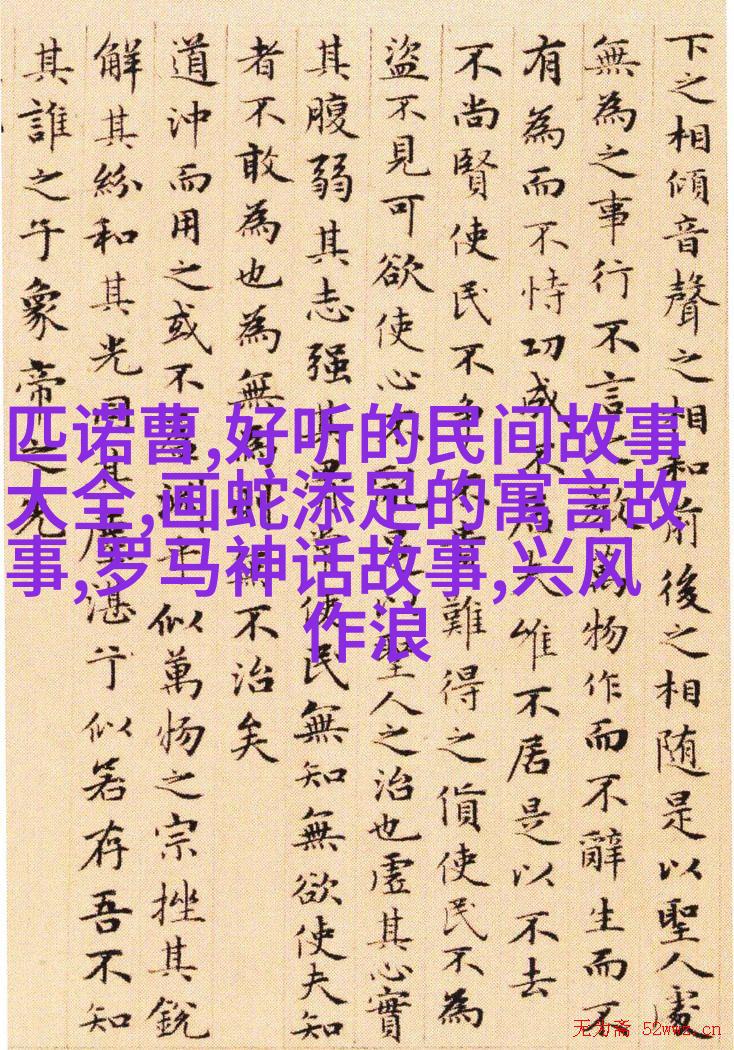 下之相傾音聲之相和前後之相随是以聖人處
無為之事行不言之教萬物作而不辭生而不
有為而不恃功成不居夫唯不居是以不去
不尚賢使民不争不貴難得之貨使民不為
盜不見可欲使心不亂是以聖人之治也虛其心實
其腹弱其志强其骨常使民無知無欲使夫知
者不敢為也為無為則無不治矣
道沖而用之或不盈淵乎似萬物之宗挫其銳
解其紛和其光同其塵湛乎似若存吾不知
其誰之子象帝之先
匹诺曹,好听的民间故事
大全,画蛇添足的寓言故
事,罗马神话故事,兴风
作浪
无为斋 52wwz.cn